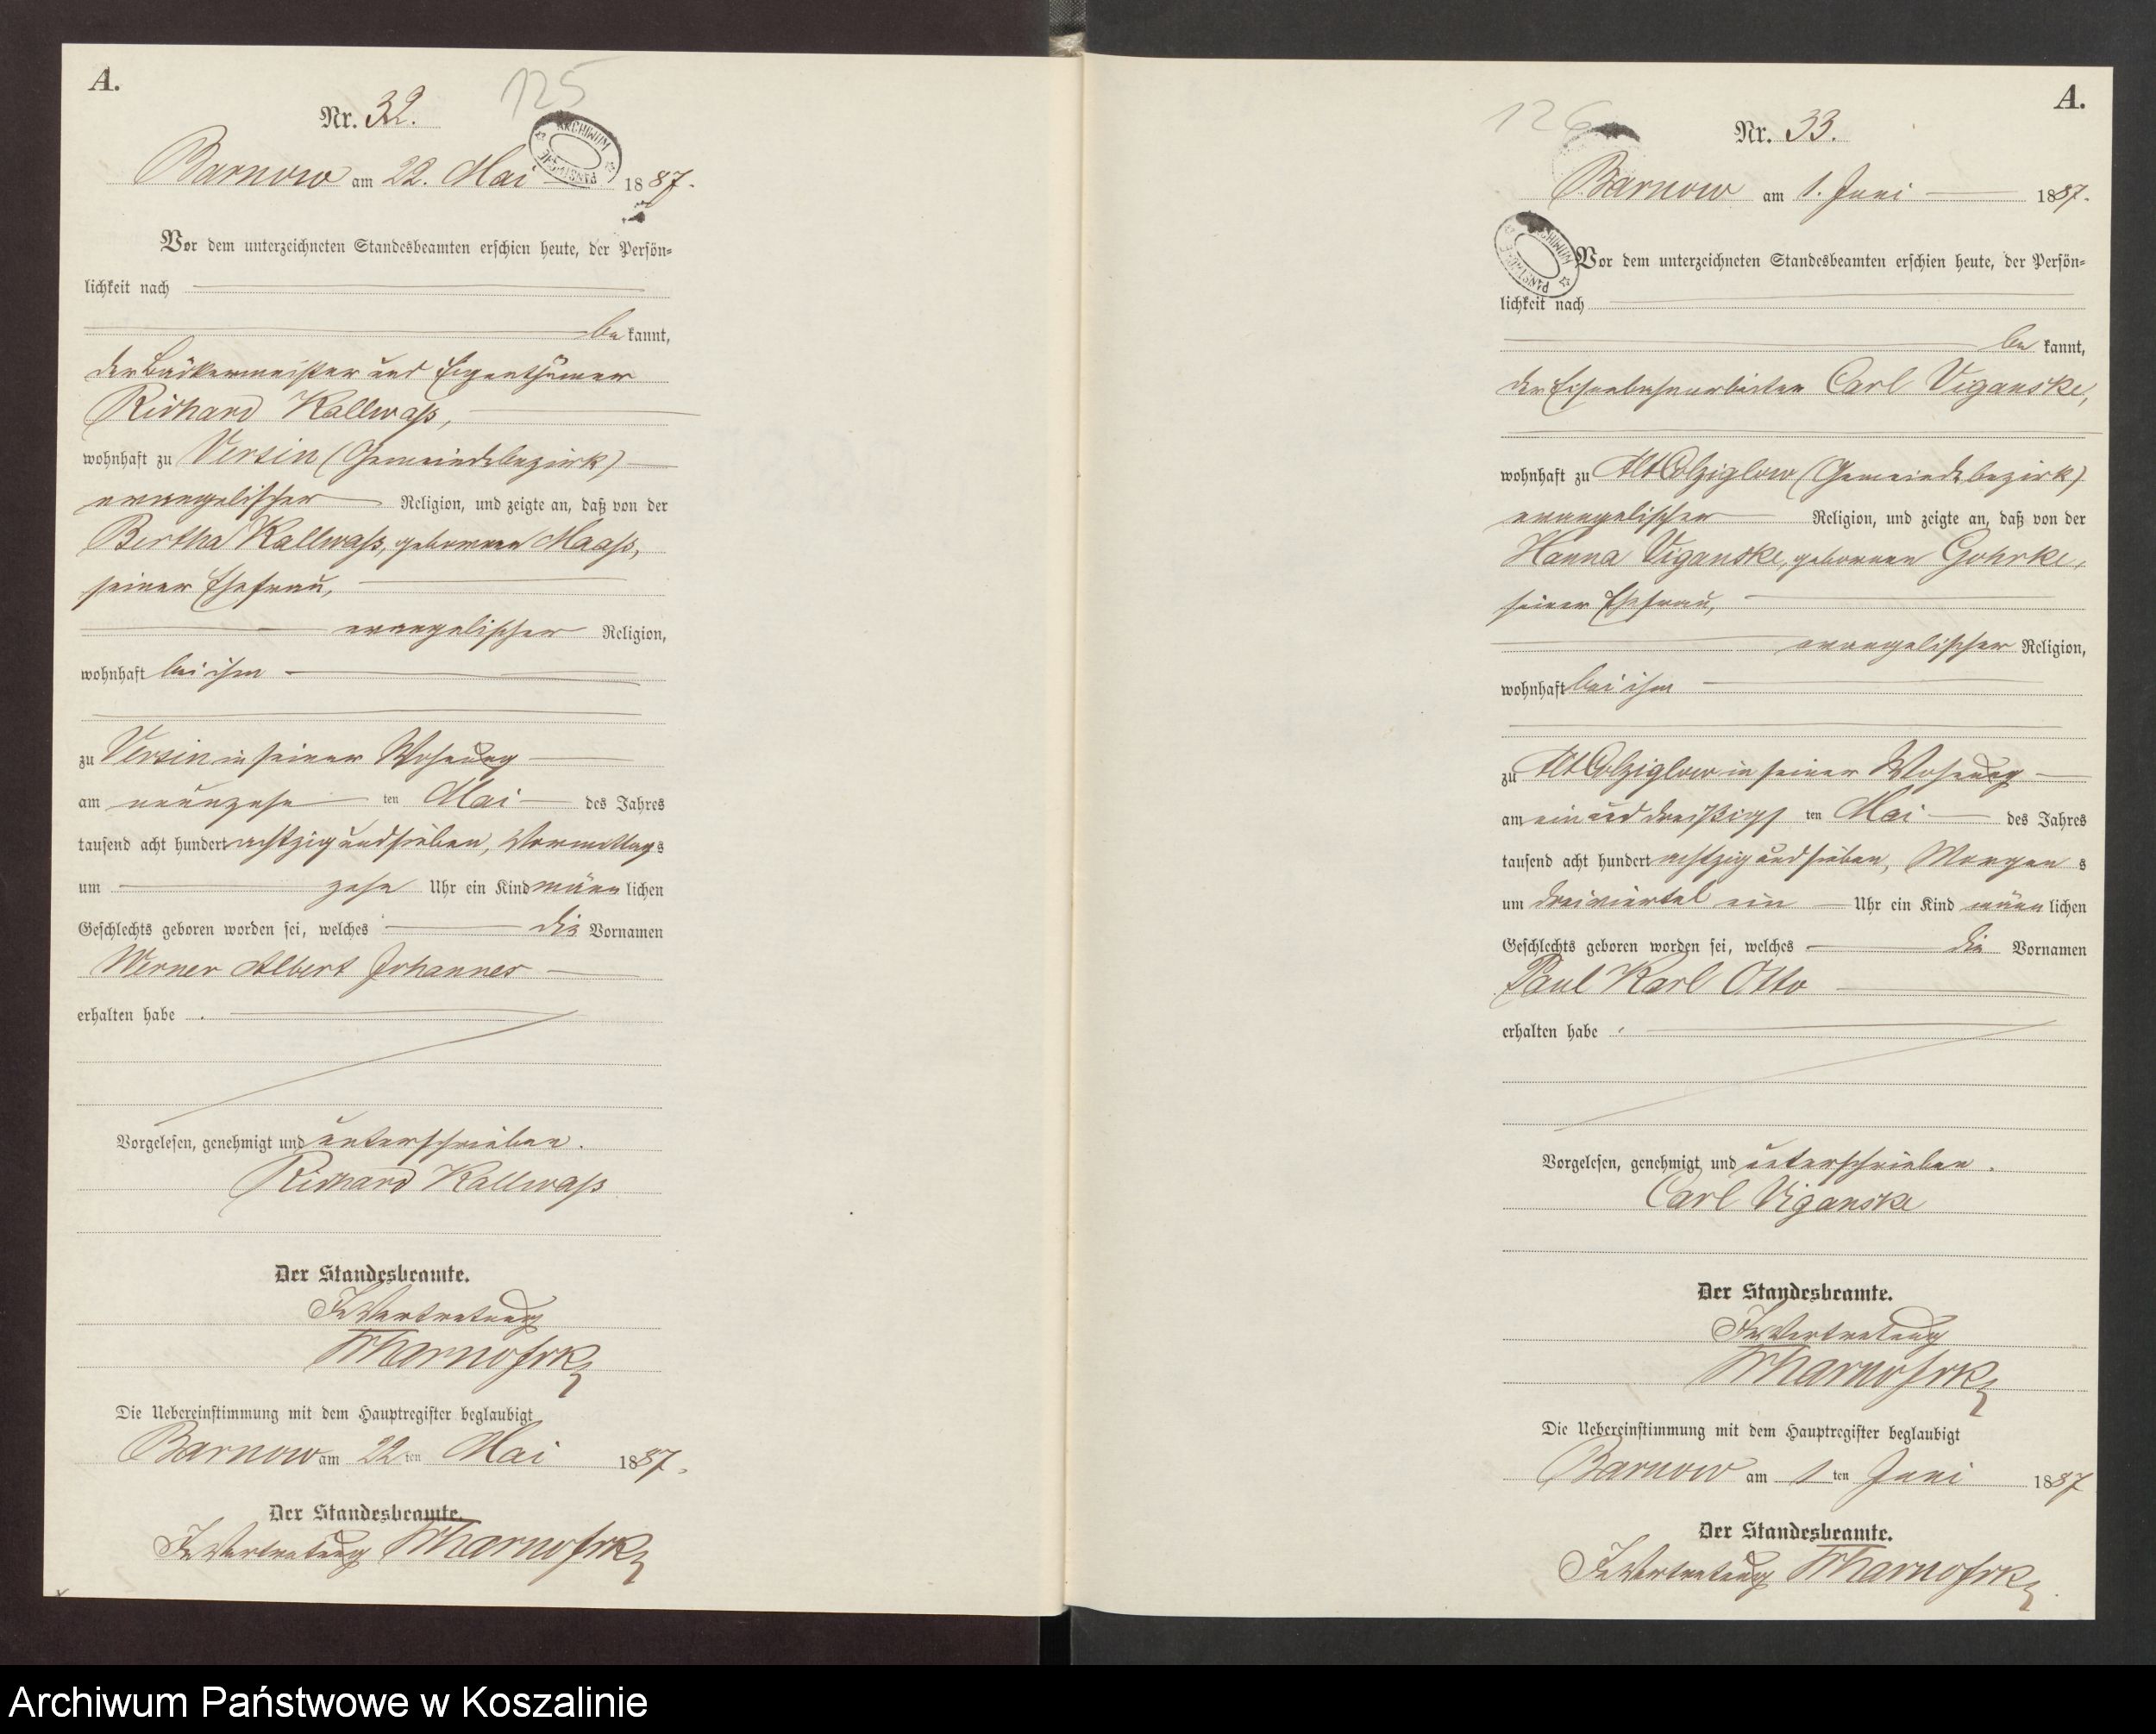 A.
125
Nr. 32.
ARCHIWUM PAŃSTWOWE
Barnow am 22. Mai 1887.
Vor dem unterzeichneten Standesbeamten erschien heute, der Persön-
lichkeit nach
bekannt,
der Bäckermeister und Eigenthümer
Richard Kallwaß,
wohnhaft zu Versin (Gemeindebezirk)
evangelischer Religion, und zeigte an, daß von der
Bertha Kallwaß, geborenen Maaß,
seiner Ehefrau,
evangelischer Religion,
wohnhaft bei ihm
zu Versin in seiner Wohnung
am neunzehn ten Mai des Jahres
tausend acht hundert achtzig und sieben, Vormittags
um zehn Uhr ein Kind männlichen
Geschlechts geboren worden sei, welches die Vornamen
Werner Albert Johannes
erhalten habe .
Vorgelesen, genehmigt und unterschrieben.
Richard Kallwaß
Der Standesbeamte.
In Vertretung
Die Uebereinstimmung mit dem Hauptregister beglaubigt
Barnow am 22 ten Mai 1887.
Der Standesbeamte.
In Vertretung
A.
126
Nr. 33.
Barnow am 1. Juni 1887.
ARCHIWUM PAŃSTWOWE
Vor dem unterzeichneten Standesbeamten erschien heute, der Persön-
lichkeit nach
bekannt,
der Eisenbahnarbeiter Carl Viganske,
wohnhaft zu Alt Colziglow (Gemeindebezirk)
evangelischer Religion, und zeigte an, daß von der
Hanna Viganske, geborenen Gohrke,
seiner Ehefrau,
evangelischer Religion,
wohnhaft bei ihm
zu Alt Colziglow in seiner Wohnung
am ein und dreißigs ten Mai des Jahres
tausend acht hundert achtzig und sieben, Morgens
um dreiviertel ein Uhr ein Kind männlichen
Geschlechts geboren worden sei, welches die Vornamen
Paul Karl Otto
erhalten habe .
Vorgelesen, genehmigt und unterschrieben.
Carl Viganske
Der Standesbeamte.
In Vertretung
Die Uebereinstimmung mit dem Hauptregister beglaubigt
Barnow am 1 ten Juni 1887
Der Standesbeamte.
In Vertretung
Archiwum Państwowe w Koszalinie